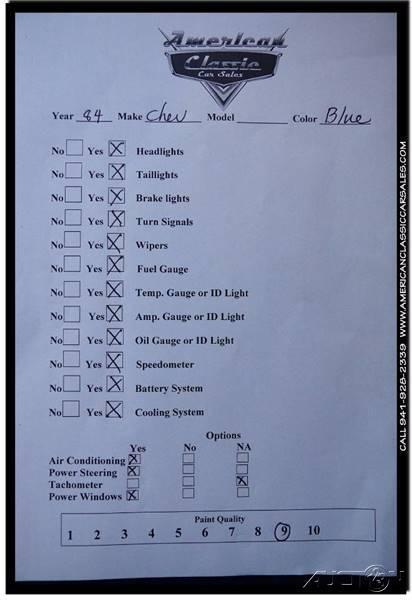 American
Classic
Car Sales
Year 84 Make Chev Model Color Blue
No Yes X Headlights
No Yes X Taillights
No Yes X Brake lights
No Yes X Turn Signals
No Yes X Wipers
No Yes X Fuel Gauge
No Yes X Temp. Gauge or ID Light
No Yes X Amp. Gauge or ID Light
No Yes X Oil Gauge or ID Light
No Yes X Speedometer
No Yes X Battery System
No Yes X Cooling System
Options
Yes No NA
Air Conditioning X
Power Steering X
Tachometer X
Power Windows X
Paint Quality
1 2 3 4 5 6 7 8 9 10
CALL 941-928-2339 WWW.AMERICANCLASSICCARSALES.COM
AUCTION